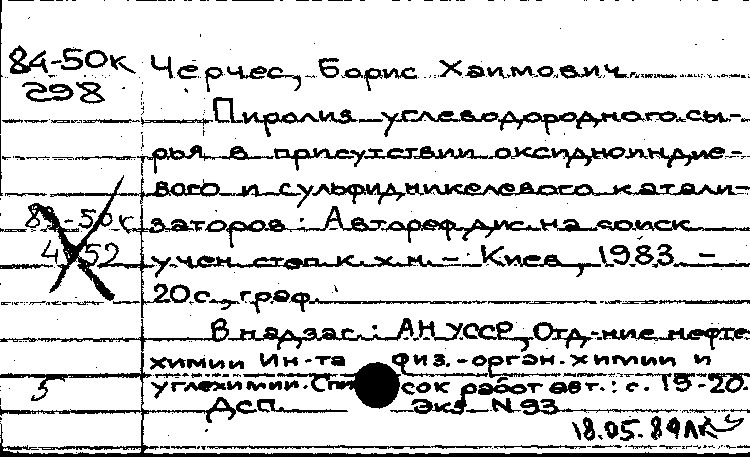 84-50к Черчес, Борис Хаимович.
298
Пиролиз углеводородного сы-
рья в присутствии оксидноиндие-
вого и сульфидникелевого катали-
83-50к заторов: Автореф. дис. на соиск.
учен. степ. к. х. н. - Киев, 1983. -
20 с., граф.
В надзаг.: АН УССР, Отд-ние нефте-
химии Ин-та физ.-орган. химии и
5 углехимии. Список работ авт.: с. 19-20.
Дсп. Экз. N 93
18.05.84